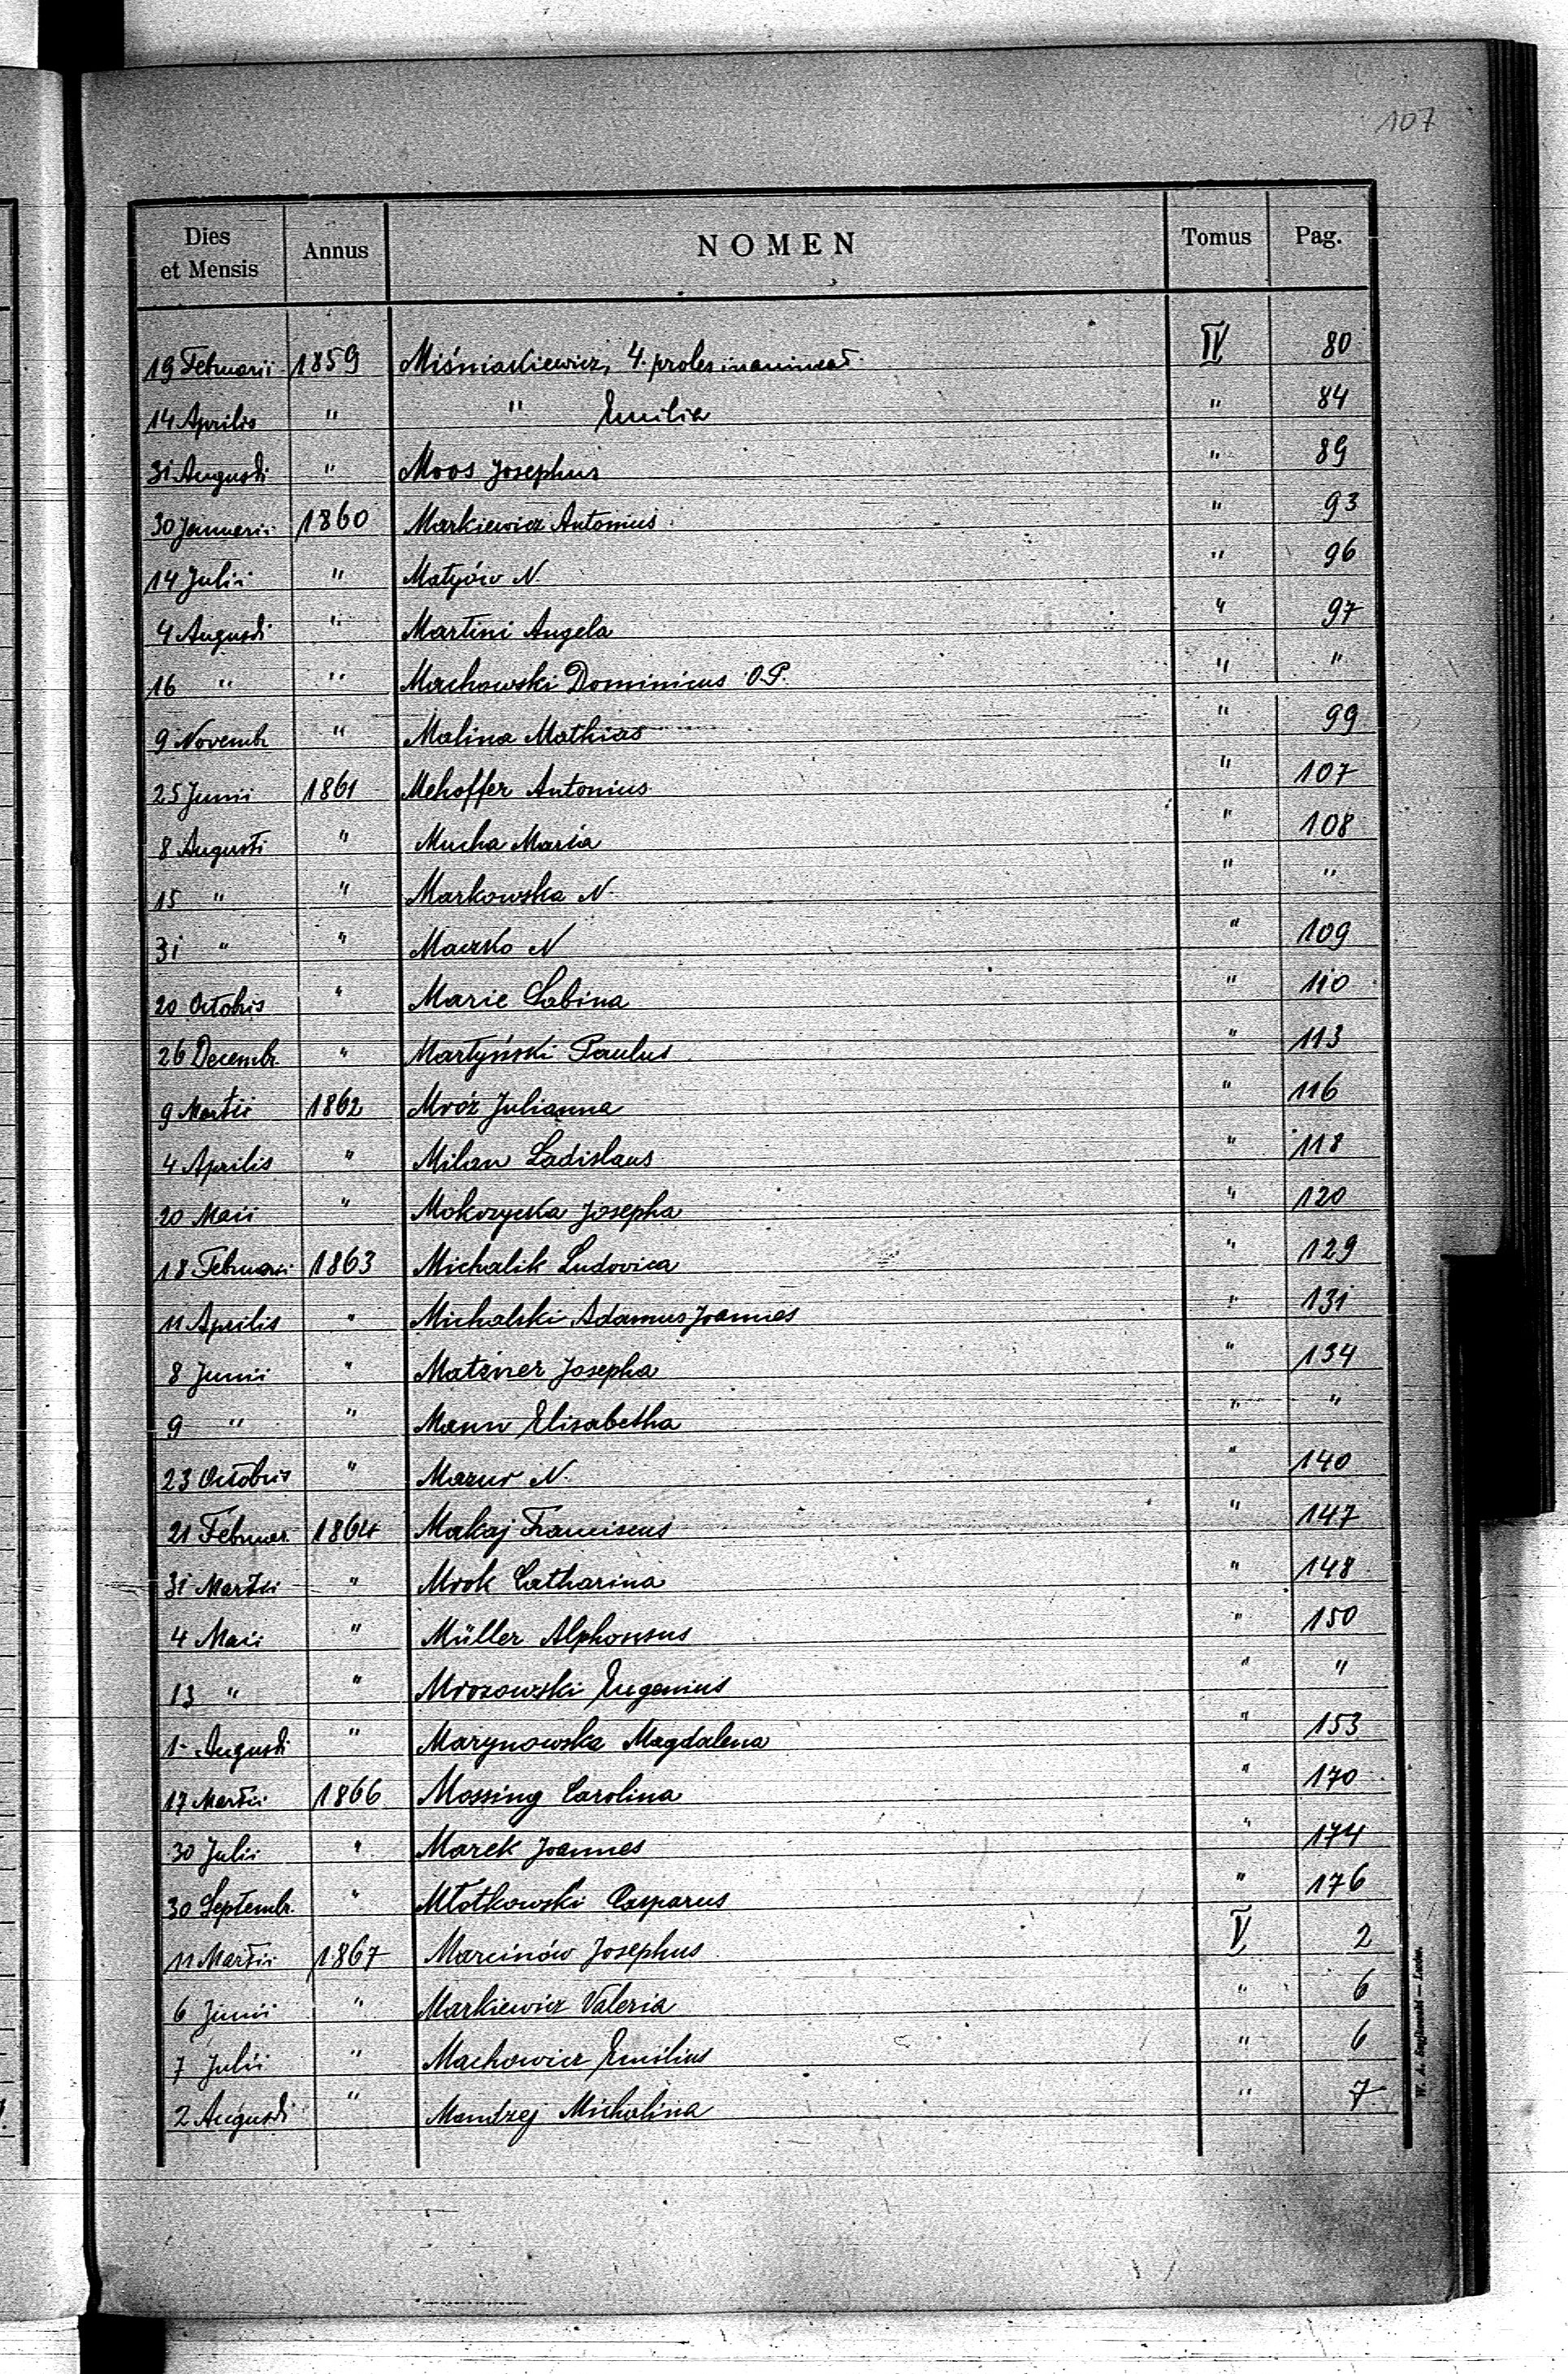 107
Dies et Mensis Annus NOMEN Tomus Pag.
19 Februarii 1859 Miśniakiewicz, 4. proles inanimat. IV 80
14 Aprilis " " Emilia " 84
31 Augusti " Moos Josephus " 89
30 Januarii 1860 Markiewicz Antonius " 93
14 Julii " Matyów N. " 96
4 Augusti " Martini Angela " 97
16 " " Machowski Dominicus O.P. " "
9 Novembr " Malina Mathias " 99
25 Junii 1861 Mehoffer Antonius " 107
8 Augusti " Mucha Maria " 108
15 " " Markowska N. " "
31 " " Maczko N " 109
20 Octobris " Marie Sabina " 110
26 Decembr. " Martyński Paulus " 113
9 Martii 1862 Mróz Julianna " 116
4 Aprilis " Milan Ladislaus " 118
20 Maii " Mokrzycka Josepha " 120
18 Februari 1863 Michalik Ludovica " 129
11 Aprilis " Michalski Adamus Joannes " 131
8 Junii " Matzner Josepha " 134
9 " " Mann Elisabetha " "
23 Octobris " Mazur N. " 140
21 Februar. 1864 Makaj Franciscus " 147
31 Martii " Mrok Catharina " 148
4 Maii " Müller Alphonsus " 150
13 " " Mrozowski Eugenius " "
1 Augusti " Marynowska Magdalena " 153
17 Martii 1866 Mossing Carolina " 170
30 Julii " Marek Joannes " 174
30 Septembr. " Młotkowski Casparus " 176
11 Martii 1867 Marcinów Josephus V 2
6 Junii " Markiewicz Valeria " 6
7 Julii " Machowicz Emilius " 6
2 Augusti " Mandzej Michalina " 7